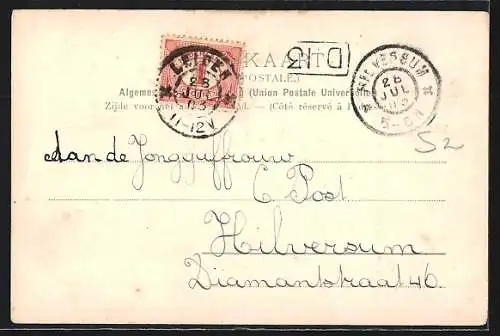 KAART
D 13
POSTALE.)
(Union Postale Universelle)
Zijde voor het (Côté réservé à l'adresse)
LEIDEN
28
JUL
03
11-12V
HILVERSUM
28
JUL
03
5-6N
52
Aan de Jongejuffrouw
C Post
Hilversum
Diamantstraat 46.